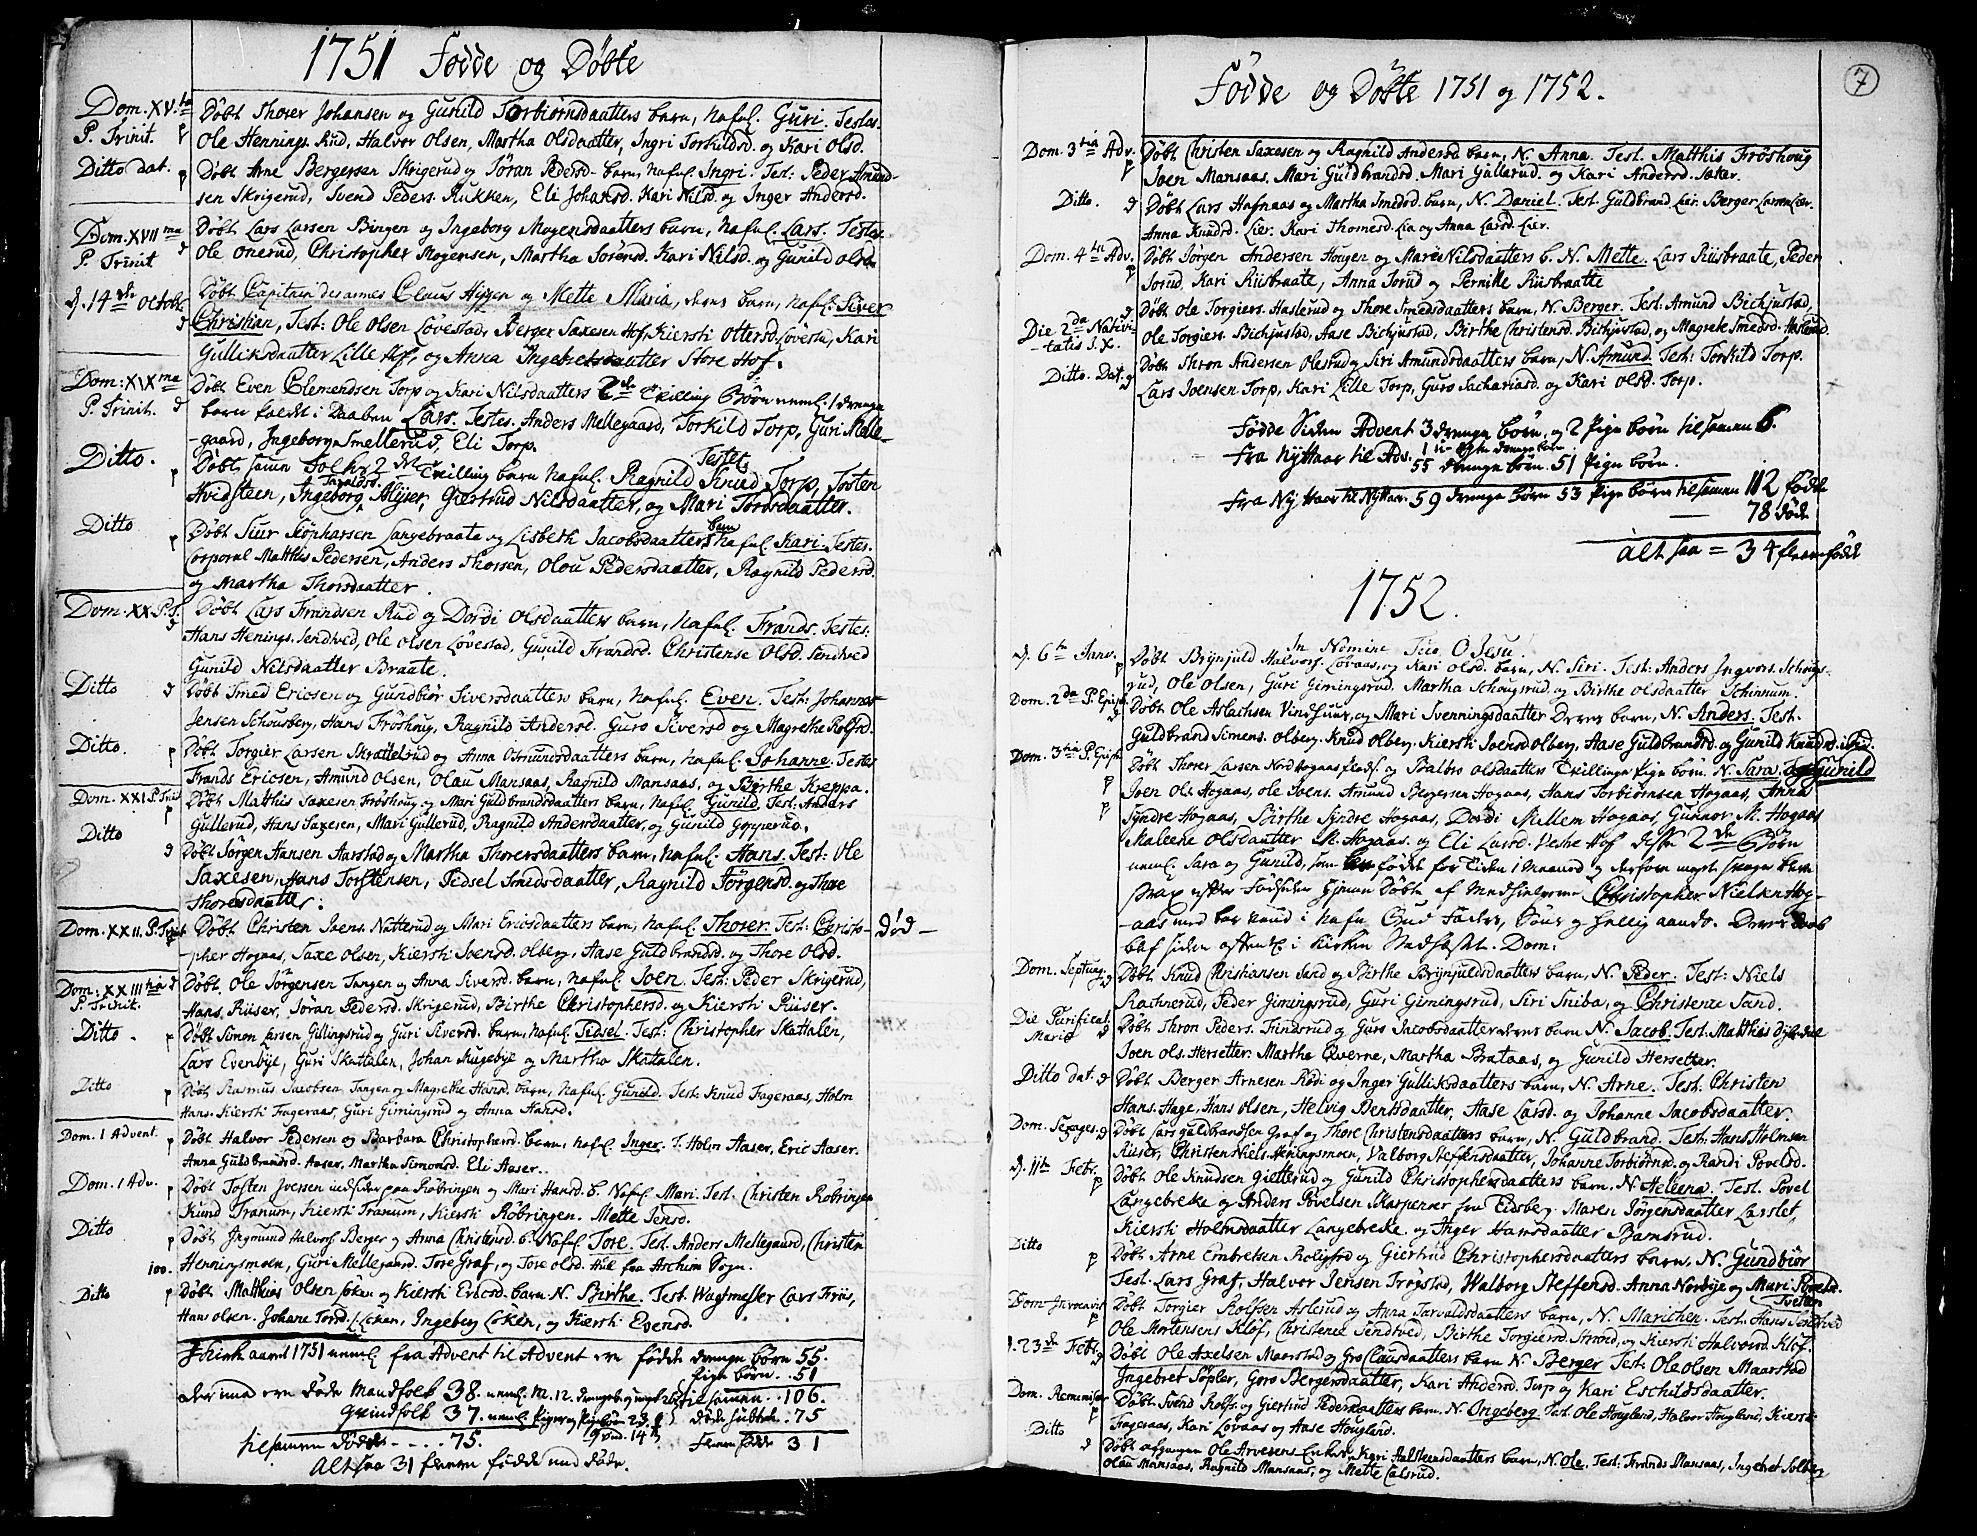 1751 Fødde og Døbte
Dom. XV.ta Døbt Thorer Johansen og Gunild Torbiørnsdaatters barn, Nafnl. Guri. Testes.
P. Trinit. p Ole Hennings. Rud, Halvor Olsen, Martha Olsdaatter, Ingri Torkildsd. og Kari Olsd.
Ditto dat. p Døbt Arne Bergersen Skrigerud og Jøran Pedersd. barn, Nafnl. Ingri. Test: Peder Amund-
sen Skrigerud, Svend Peders. Rukken, Eli Johansd. Kari Nilsd. og Inger Andersd.
Dom. XVII ma Døbt Lars Larsen Bingen og Ingeborg Mogensdaatters barn, Nafnl. Lars. Testes.
P. Trinit d Ole Onerud, Christopher Mogensen, Martha Sørensd. Kari Nilsd. og Gunild Olsd.
d. 14de Octobr. Døbt Capitain des armes Claus Hissen og Mette Maria, deres barn, Nafnl. Siver
d Christian, Test: Ole Olsen Løvestad, Berger Saxesen Hof, Kiersti Ottersd. Løvestad, Kari
Gulliksdaatter Lille Hof, og Anna Ingebretsdaatter Store Hof.
Dom: XIX ma Døbt Even Clemendsen Torp og Kari Nilsdaatters 2de Tvilling Børn nemi. 1 drenge
P. Trinit. d barn kaldt i Daaben Lars. Testes. Anders Mellegaard, Torkild Torp, Guri Melle-
-gaard, Ingeborg Smellerud, Eli Torp.
Ditto. p Døbt samme Tvilling barn Nafnl. Ragnild Testes Knud Torp, Tosten
Hvidsteen, Ingeborg Taraldsd. Mijer, Giertrud Nilsdaatter, og Mari Tordsdaatter.
Ditto p Døbt Siur Støpharsen Langebraate og Lisbeth Jacobsdaatters barn Nafnl. Kari. Testes.
Corporal Matthis Pedersen, Anders Thorsen, Olou Pedersdaatter, Ragnild Pedersd.
og Martha Thorsdaatter.
Dom. XX P.T. d Døbt Lars Frandsen Rud og Dordi Olsdaatters barn, Nafnl. Frands. Testes:
Hans Henings. Sendved, Ole Olsen Løvestad, Gunild Frandsd. Christense Olsd. Sendved
Gunild Nilsdaatter Braate.
Ditto d Døbt Smed Ericsen og Gundbiør Siversdaatters barn, Nafnl. Even. Test: Johannes
Jensen Schousberg, Hans Frøshoug, Ragnild Andersd. Guro Siversd og Magrethe Rolfsd.
Ditto. p Døbt Torgier Larsen Skrattelsrud og Anna Osmundsdaatters barn, Nafnl. Johanne. Testes
Frands Ericsen, Amund Olsen, Olau Mansaas, Ragnild Mansaas, og Birthe Kreppa.
Dom. XXI P. Trinit p Døbt Mathis Saxesen Frøshoug og Mari Guldbrandsdaatters barn, Nafnl. Gunild, Test. Anders
Gullerud, Hans Saxesen, Mari Gullerud, Ragnild Andersdaatter, og Gunild Gopperud.
Ditto d Døbt Jørgen Hansen Aarstad og Martha Thorersdaatters barn, Nafnl. Hans. Test: Ole
Saxesen, Hans Torstensen, Sidsel Smedsdaatter, Ragnild Jørgensd. og Thore
Thoresdaatter.
Dom. XXII. P. Trinit Døbt Christen Joens. Natterud og Mari Ericsdaatters barn, Nafnl. Thorer. Test: Christo-
-pher Hogaas, Saxe Olsen, Kiersti Joensd. Olberg, Aase Guldbrandsd. og Thore Olsd.
Dom: XXIII tia d Døbt. Ole Jørgensen Tangen og Anna Siversd. barn, Nafnl. Joen. Test: Peder Skrigerud,
P. Trinit. Hans. Riiser, Jøran Pedersd. Skrigerud, Birthe Christophersd. og Kiersti Riiser.
Ditto. p Døbt Simon Larsen Gillingsrud og Guri Siversd. barn, Nafnl. Sidsel. Test: Christopher Skattalen,
Lars Evenbye, Guri Skattalen, Johan Rugebye og Martha Skattalen.
Ditto p Døbt Rasmus Jacobsen Tangen og Magrethe Hansd. barn, Nafnl. Gunild. Test: Knud Fageraas, Holm
Hans. Kiersti Fageraas, Guri Gimingsrud og Anna Hansd.
Dom. 1 Advent. p Døbt Halvor Pedersen og Barbara Christophersd. barn, Nafnl. Inger. T: Holm Aaser, Eric Aaser.
Anna Guldbrandsd. Aaser, Martha Simonsd. Eli Aaser.
Dom. 1 Adv. p Døbt Tosten Iversen indsidder paa Røbringen og Mari Hansd. b. Nafnl. Mari. Test. Christen Røbringen
Knud Tranum, Kiersti Tranum, Kiersti Røbringen. Mette Jensd.
Ditto p Døbt Ingmund Halvors Berger og Anna Christensd. b. Nafnl. Tore. Test. Anders Mellegaard, Christen
100. Henningsmoen, Guri Mellegaard. Tore Graf, og Tore Olsd. Hul fra Askims Sogn.
Ditto p Døbt Matthias Olsen Løken og Kiersti Ericsd. barn N. Birthe. Test. Wagtmester Lars Friis,
Hans Olsen. Johane Tordsd. Løken, Ingeborg Løken, og Kiersti Evensd.
I Kirke aaret 1751 nemi. fra Advent til Advent ere fødde drenge børn 55.
Pige børn . . 51
der imod ere døde Mandfolk 38. tilsammen . . 106.
Qvindfolk 37. døde subtrah. . 75
tilsammen døde . . . . 75. fleere fødde 31
Altsaa 31 fleere fødde end døde.
død
7
Fødde og Døbte 1751 og 1752.
Dom. 3tia Adv. p Døbt Christen Saxesen og Ragnild Andersd barn, N. Anna. Test. Matthis Frøshoug
Joen Mansaas. Mari Guldbrandsd. Mari Gullerud. og Kari Andersd. Sæter.
Ditto. d Døbt Lars Hafnaas og Martha Smedsd. barn, N. Daniel. Test. Guldbrand Lier. Berger Larsen Lier.
Anna Knudsd. Lier. Kari Thomesd. Lia og Anna Larsd. Lier.
Dom. 4ta Adv. p Døbt Jørgen Andersen Hougen og Maren Nilsdaatters b. N. Mette. Lars Riisbraate, Peder
Josud, Kari Riisbraate, Anna Josud og Pernille Riisbraatte
d Døbt Ole Torgiers. Haslerud og Thore Smedsdaatters barn, N. Berger. Test. Amund Bichjustad,
Die 2da Nativi- Ole Torgiers. Bichjustad, Aase Bichjustad, Birthe Christensd. Bichjustad, og Magrete Smedsd. Haslerud.
-tatis J. X.
Ditto. Dat. d Døbt Thron Andersen Olestad og Siri Amundsdaatters barn, N. Amund. Test: Torkild Torp.
Lars Joensen Torp, Kari Lille Torp, Guro Sachariasd. og Kari Olsd. Torp.
Fødde Siden Advent 3 drenge børn, og 2 Pige børn tilsammen 6.
Fra Nyttaar til Adv. 55 drenge børn. 51 Pige børn.
Fra Ny Haar til Nyttaar. 59 drenge børn 53 Pige børn tilsammen 112 fødde
78 døde
Altsaa = 34 fleere fødde
1752.
In Nomine Tuo, O Jesu!
d. 6te Janv. p Døbt Brynjuld Halvors. Lovaas, og Kari Olsd. barn, N. Siri. Test: Anders Ingvors. Schougs-
rud, Ole Olsen, Guri Gimingsrud. Martha Schougsrud og Birthe Olsdaatter Schinnum.
Dom. 2da P. Epiph. d Døbt Ole Aslachsen Vindhuus, og Mari Svenningsdaatter Deres barn, N. Anders. Test.
Guldbrand Simens. Olberg. Knud Olberg. Kiersti Joensd Olberg, Aase Guldbrandsd. og Gunild Knudsd. ibid.
Dom. 3tia P. Epiph. p Døbt Thorer Larsen Nord Hogaas Plads. og Balbro Olsdaatters Tvillinge Pige børn. N. Sara og Gunild
Joen Ols. Hogaas, Ole Joens. Amund Bergersen Hogaas, Hans Torbiørnsen Hogaas, Anna
p Syndre Hogaas, Birthe Syndre Hogaas, Dordi Mellem Hogaas, Gunnor M. Hogaas
Maleene Olsdaatter M. Hogaas og Eli Larsd. Vestre Hof disse 2de Børn
nemi. Sara og Gunild, som fødde for tiden 1 Maaned og derfore meget svage bleve
strax efter Fødselen hjemme Døbt af Medhielperne Christopher Nielsen Hog-
-aas med bar vand i Nafn Gud Faders, Søns og hellig aands. Deres Daab
blef siden offentl. i Kirken Stadfæstet. Dom.
Dom. Septuag. d Døbt Knud Christiansen Sand og Birthe Brynjuldsdaatters barn, N. Peder. Test: Niels
Rachnerud, Peder Gimingsrud, Guri Gimingsrud, Siri Sniba, og Christence Sand.
Die Purificat. Døbt Thron Peders. Trindsrud og Guro Jacobsdaatter deres barn N. Jacob. Test: Matthis
Mariæ d Joen Ols. Hersetter. Marthe Qverne, Martha Brataas, og Gunild Hersetter.
Ditto dat. d Døbt Berger Arnesen Rødi og Inger Gulliksdaatters barn, N. Arne. Test. Christen
Hans. Hage, Hans Olsen, Helvig Bentsdaatter, Aase Larsd. og Johanne Jacobsdaatter
Dom. Sexages. d Døbt Lars Guldbrandsen Graf og Thore Christensdaatters barn, N. Guldbrand. Test: Hans Holmsen
Riiser, Christen Niels. Heningsmoen, Valborg Steffensdaatter, Johanne Torbiørnsd. og Randi Povelsd.
d. 11te Febr. p Døbt Ole Knudsen Gietterud og Gunild Christophersdaatters barn. N. Heleena. Test. Povel
Langebreke og Anders Povelsen Skarpenser fra Eidsberg. Maren Jørgensdaatter Larslet,
Kiersti Holmsdaatter Langebreke og Inger Hansdaatter Bamsrud.
Ditto p Døbt Arne Embretsen Roligfred og Giertrud Christophersdaatters barn, N. Gundbiør
Test. Lars Graf, Halvor Jensen Trøgstad, Walborg Steffensd. Anna Norbye og Mari Povelsd. Tveten
Dom Invocavit p Døbt Torgier Rolfsen Aslerud og Anna Tarvaldsdaatters barn, N. Marichen. Test: Hans Sendved
Ole Mortensens Kløf, Christence Sendtved, Birthe Torgiersd. Strønd, og Kiersti Halvorsd. Kløf.
d. 23de Febr. d Døbt Ole Axelsen Maarstad og Gro Clausdaatters barn N. Berger Test: Ole Olsen Maarstad
Ingebret Sopler, Goro Bergersdaatter, Kari Andersd. Torp og Kari Eschildsdaatter.
Dom. Reminiscere p Døbt Svend Rolfs. og Giertrud Pedersdaatters barn. N. Ongeberg Test. Ole Hougland, Halvor Hougland, Kiersti
Fageraas, Kari Lovaas og Aase Hougland.
Ditto d Døbt afgangen Ole Arvesens Enkes, Kari Halsteensdaatters barn, N. Ole. Test: Frands Mansaas, Ingebret Solberg
Olau Mansaas, Ragnild Mansaas, og Mette Calsrud.